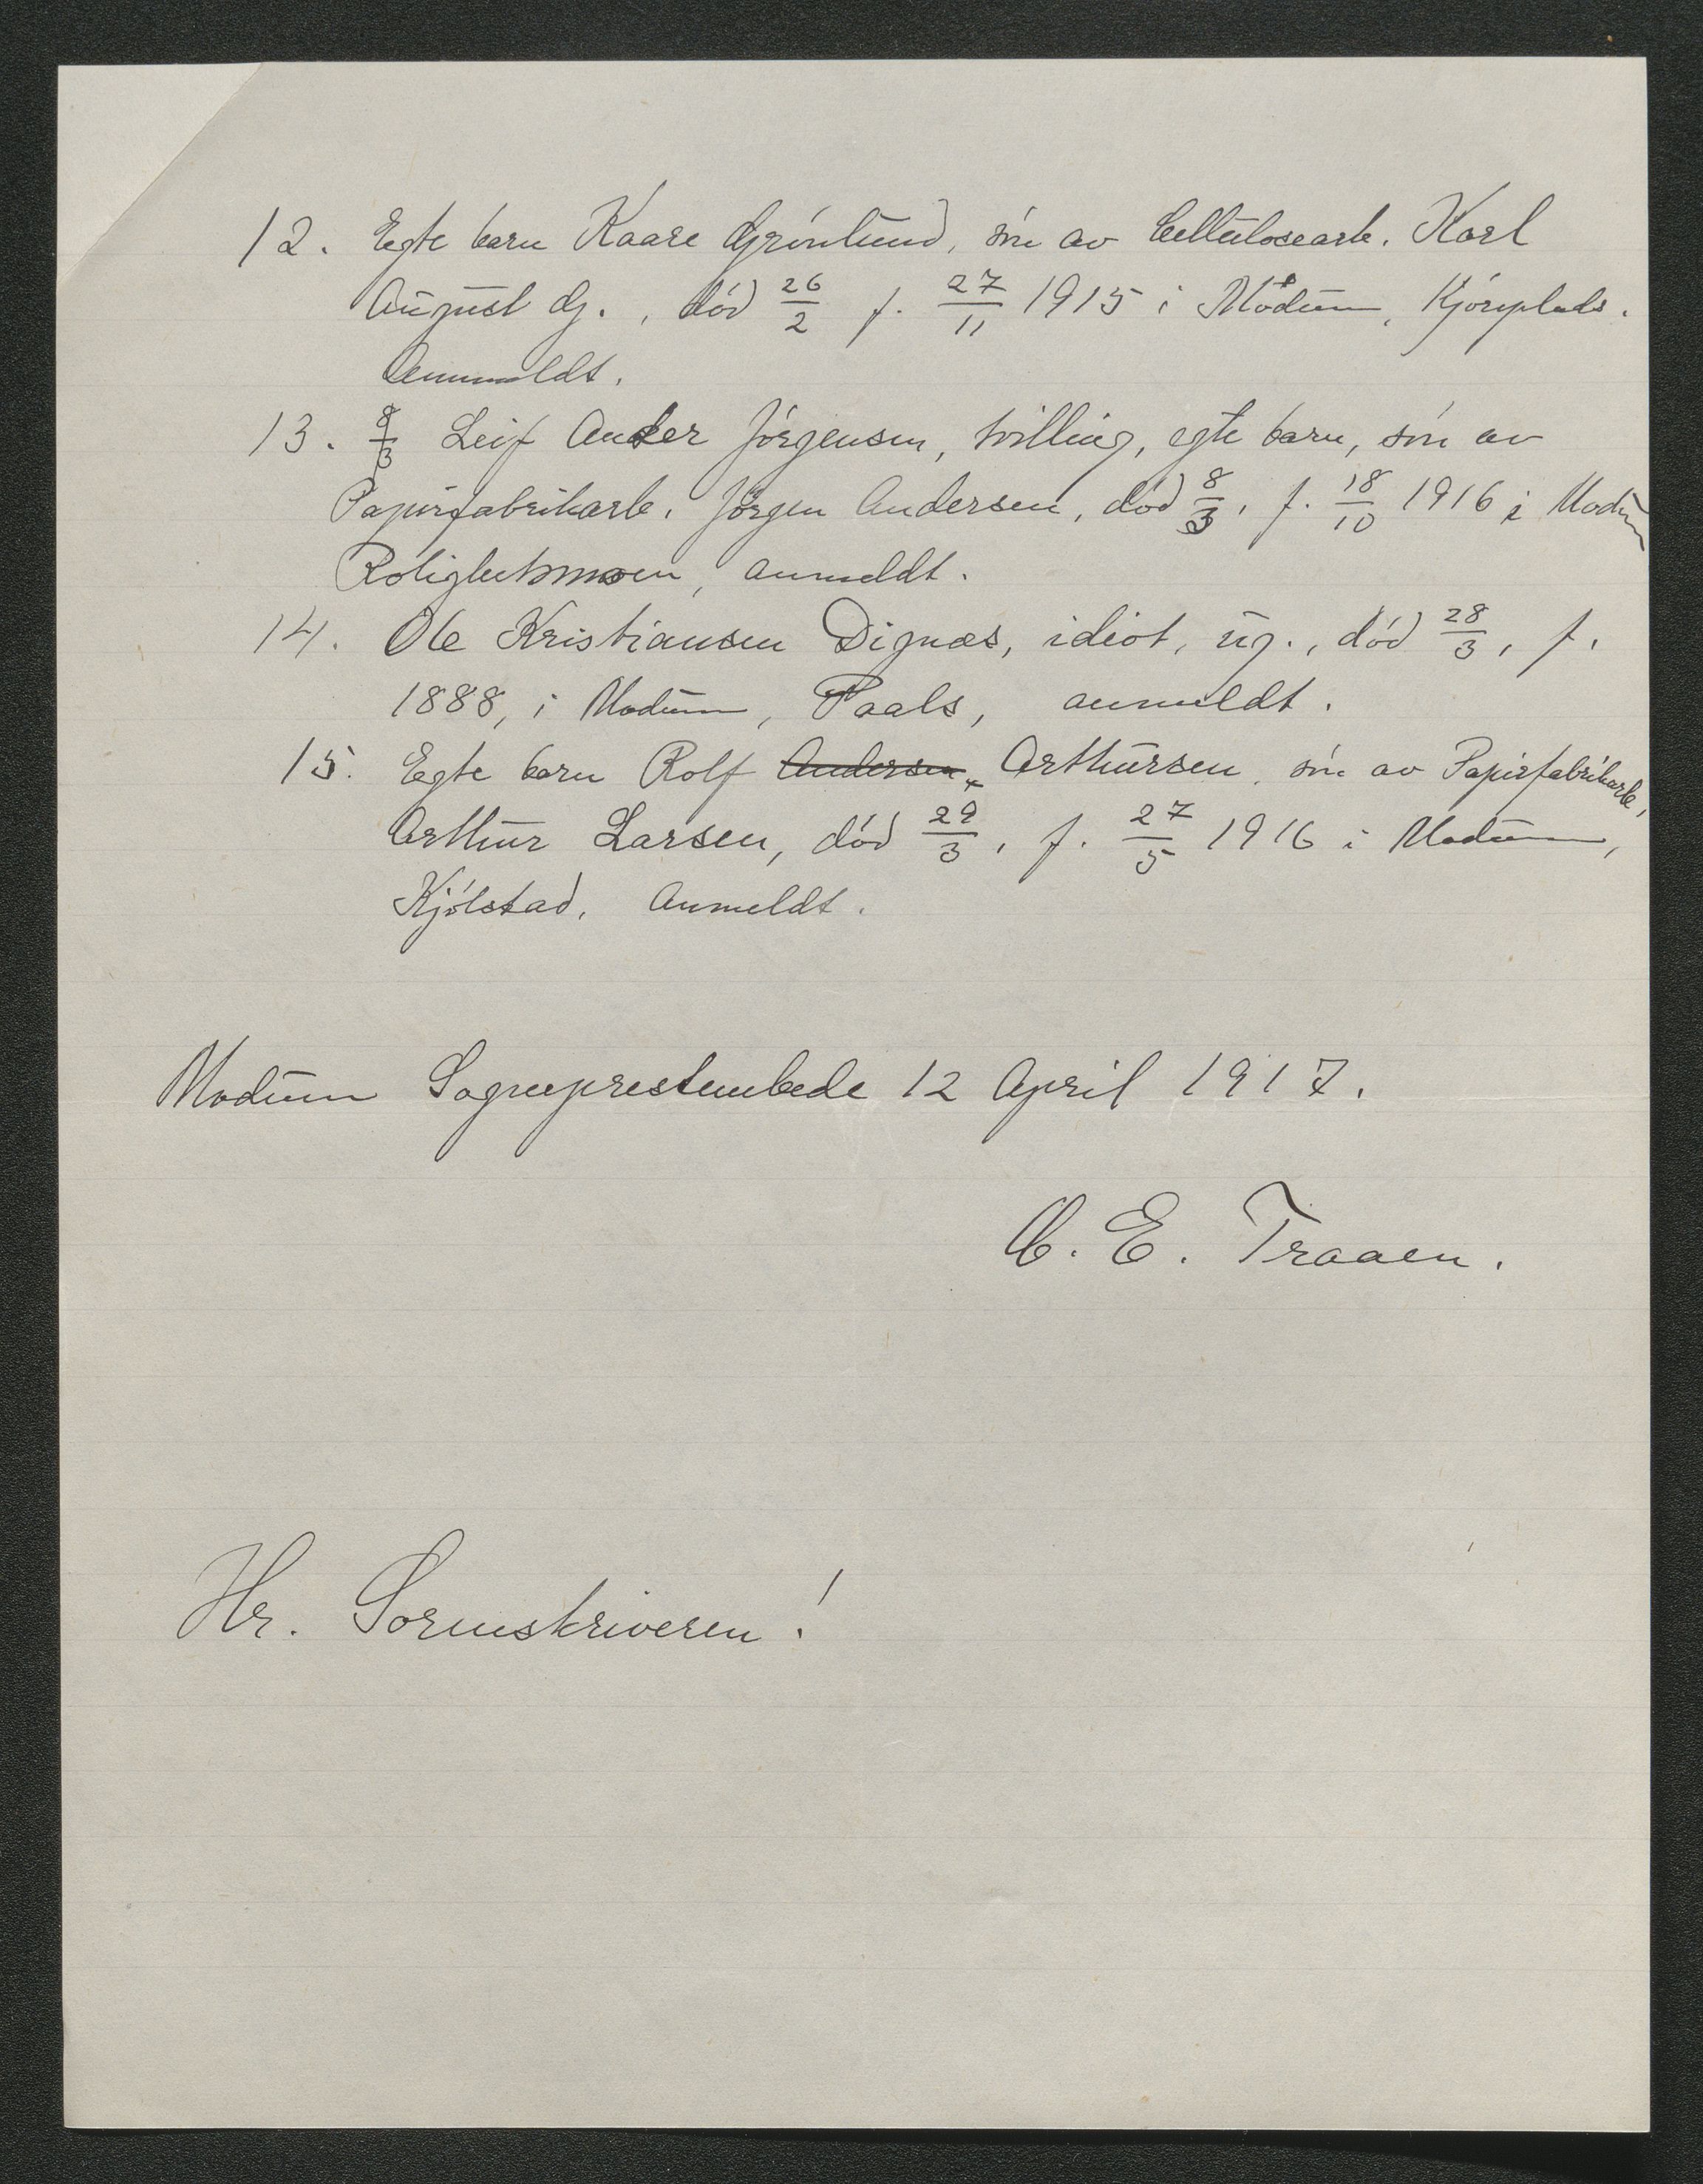 12. Egte barn Kaare Grönlund, sön av Cellulosearb. Karl
August G., död 26/2 f. 27/11 1915 i Modum, Kjörplads.
Anmeldt.
13. 8/3 Leif Anker Jörgensen, tvilling, egte barn, sön av
Papirfabrikarb. Jörgen Andersen, död 8/3, f. 18/10 1916 i Modum
Rolighetsmoen, anmeldt.
14. Ole Kristiansen Dignæs, idiot, ug., död 28/3, f.
1888, i Modum, Paals, anmeldt.
15. Egte barn Rolf Andersen, Arthursen, sön av Papirfabrikarb.
Arthur Larsen, död 29/3, f. 27/5 1916 i Modum,
Kjölstad. Anmeldt.
Modum Sogneprestembede 12 April 1917.
C. E. Traaen.
Hr. Sorenskriveren!